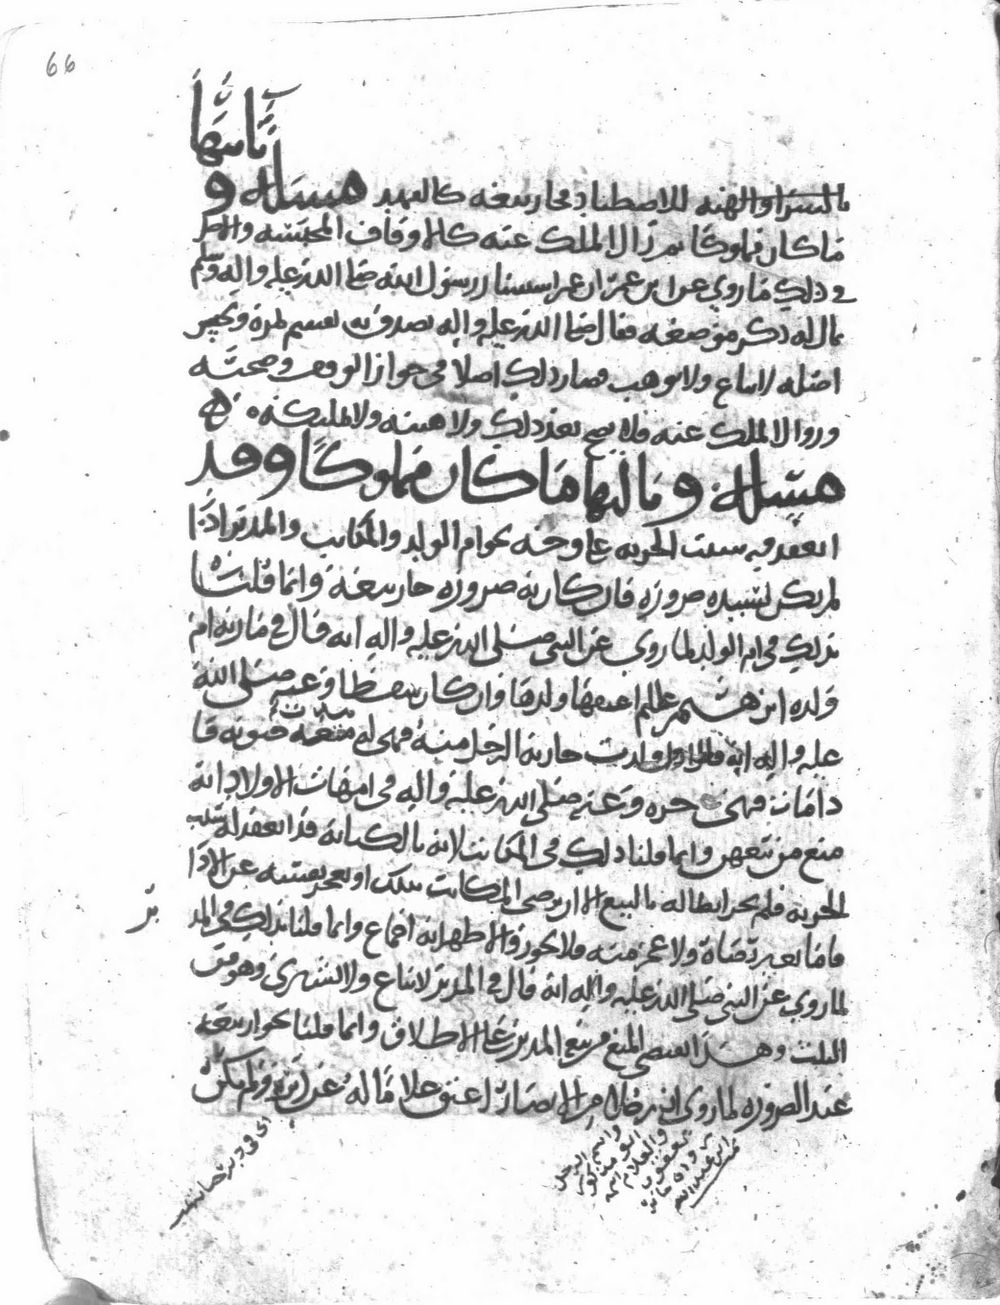 66
بالشرا والهبه للاصطياد فجاز بيعه كالعبد مسئله وثانيها
ما كان مملوكا ثم زال الملك عنه كالاوقاف المحبسه والاصل
في ذلك ما روي عن ابن عمر ان عمر استشار رسول الله صلى الله عليه واله وسلم
مال له ذكر من صفته فقال صلى الله عليه واله تصدق به يقسم ثمره ويحبس
اصله لا يباع ولا يوهب فصار ذلك اصلا في جواز الوقف وصحته
وزوال الملك عنه فلا يصح بعد ذلك ولا هبته ولا تمليكه
مسئله وثالثها ما كان مملوكا وقد
انعقد فيه سبب الحريه على وجه نحو ام الولد والمكاتب والمدبر اذا
لم يكن لسيده ضرورة فان كان به ضرورة جاز بيعه وانما قلنا
بذلك في ام الولد لما روي عن النبي صلى الله عليه واله انه قال في مارية ام
ولده ابراهيم عليلم اعتقها ولدها وان كان سقطا وعنه صلى الله
عليه واله انه قال اذا ولدت جارية الرجل منه فهي له متعة حيوته فا
ذا مات فهي حرة وعنه صلى الله عليه واله في امهات الاولاد انه
منع من بيعهن وانما قلنا ذلك في المكاتب لانه بالكتابة قد انعقد له سبب
الحرية فلم يجز ابطاله بالبيع الا ان يرضى المكاتب بذلك او يعجز نفسه عن الاداء
فاما بغير رضاه ولا عجز منه فلا يجوز والاظهر انه اجماع وانما قلنا بذلك في المد
بر
لما روي عن النبي صلى الله عليه واله انه قال في المدبر لا يباع ولا يشترى وهو من
الثلث وهذا يقتضي المنع من بيع المدبر على الاطلاق وانما قلنا بجواز بيعه
عند الضرورة لما روي ان رجلا من الانصار اعتق غلاما له عن دبر ولم يكن
واسم الرجل
ابو مذكور
والغلام اسمه
يعقوب